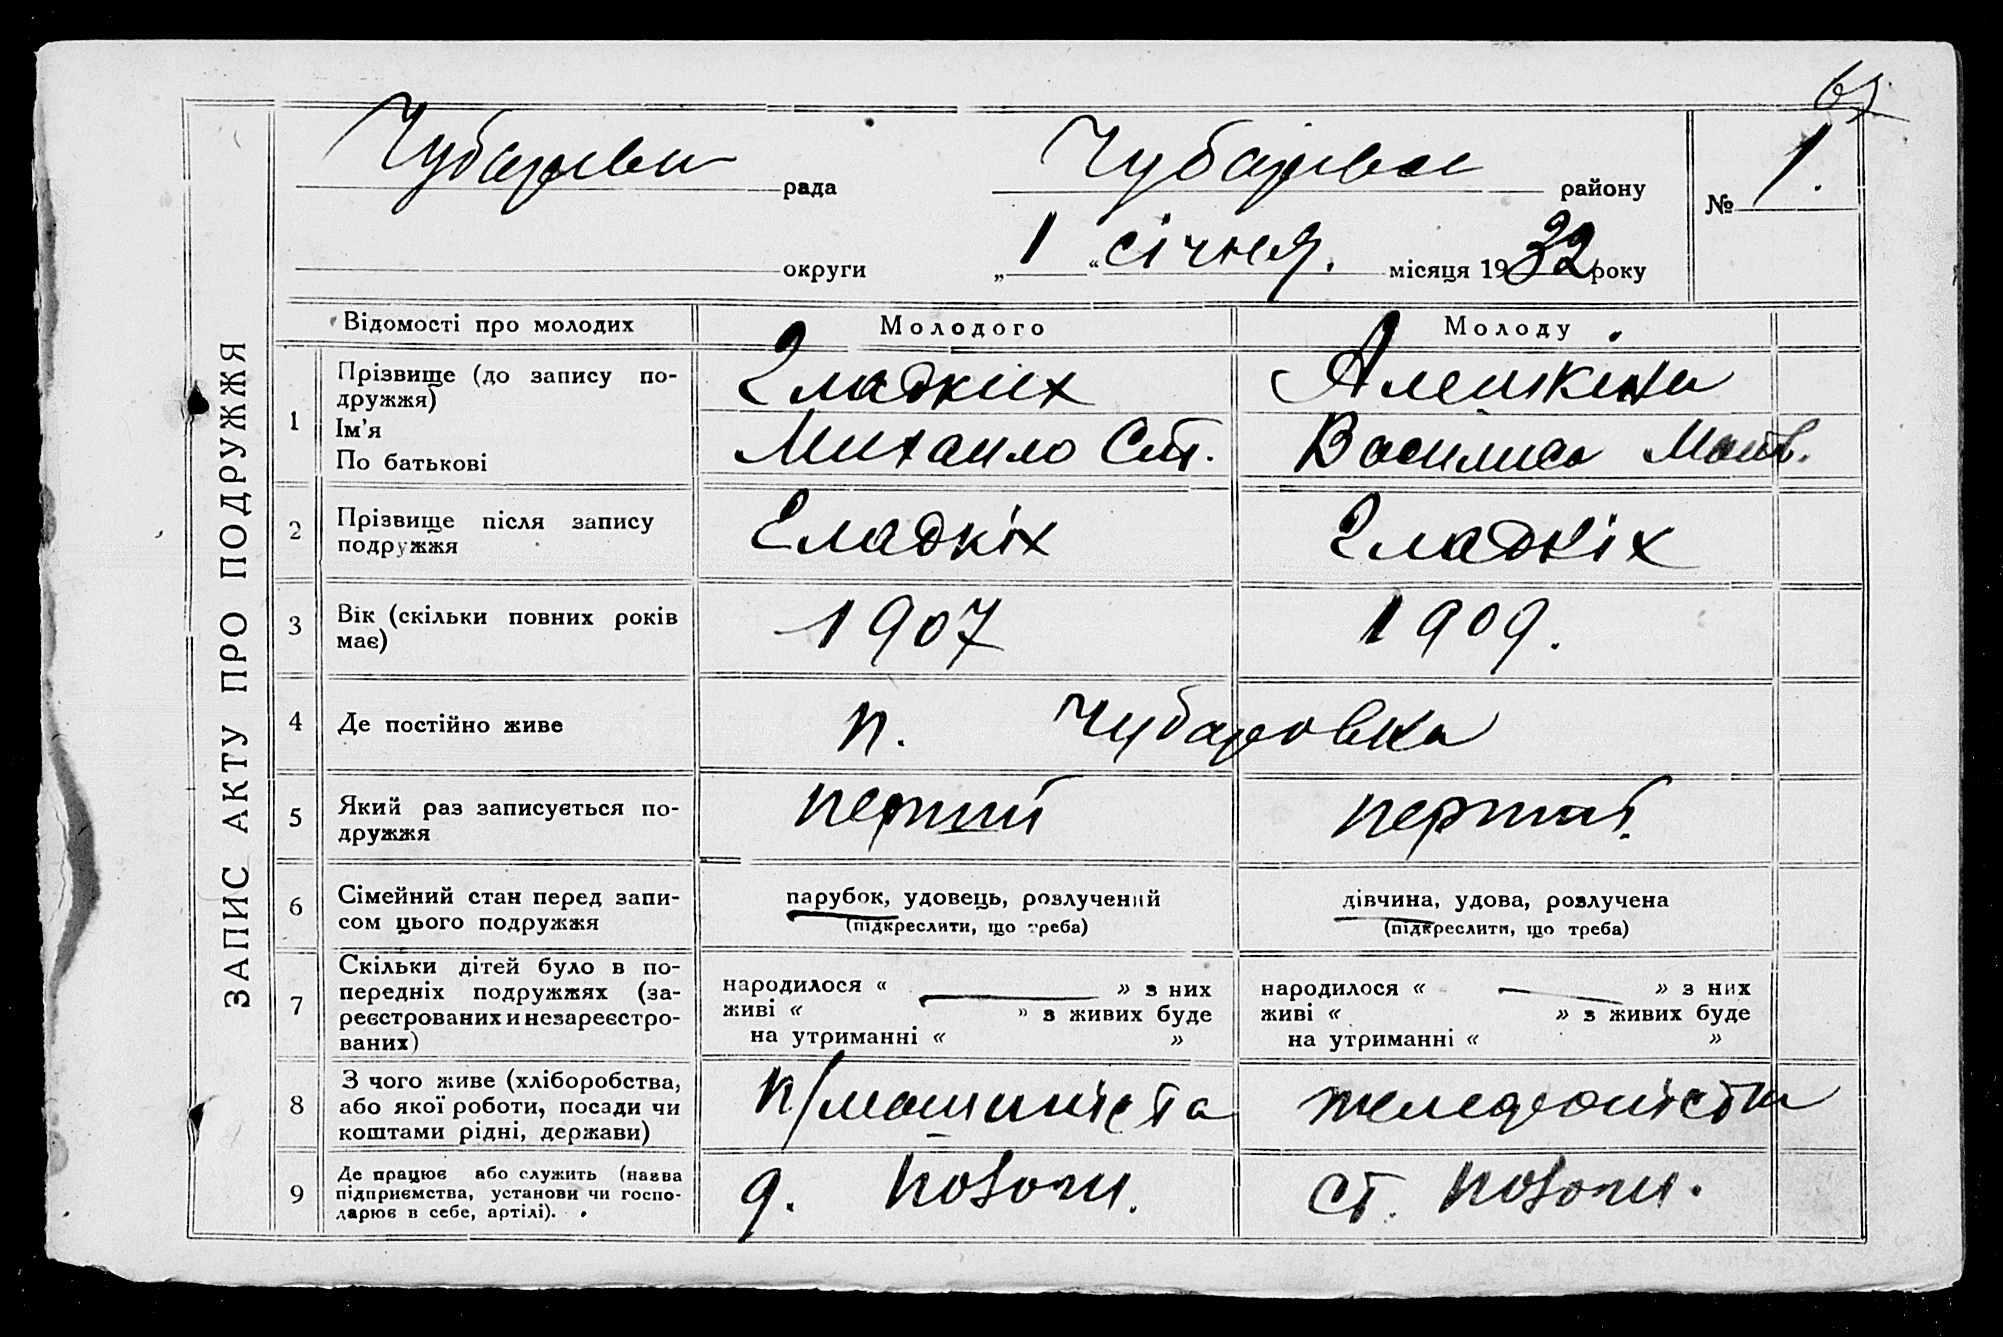 67
Чубарівська рада
Чубарівськ району
№ 1.
округи
„ 1 “ січня. місяця 1932 року
ЗАПИС АКТУ ПРО ПОДРУЖЖЯ
Відомості про молодих
Молодого
Молоду
1
Прізвище (до запису по-
дружжя)
Ім'я
По батькові
Гладких
Михаило Ст.
Алешкіна
Василиса Матв.
2
Прізвище після запису
подружжя
Гладкіх
Гладкіх
3
Вік (скільки повних років
має)
1907
1909.
4
Де постійно живе
п. Чубаровка
5
Який раз записується по-
дружжя
перший
перший.
6
Сімейний стан перед запи-
сом цього подружжя
парубок, удовець, розлучений
(підкреслити, що треба)
дівчина, удова, розлучена
(підкреслити, що треба)
7
Скільки дітей було в по-
передніх подружжях (за-
реєстрованих и незареєстро-
ваних)
народилося « — » з них
живі « » з живих буде
на утриманні « »
народилося « — » з них
живі « » з живих буде
на утриманні « »
8
З чого живе (хліборобства,
або якої роботи, посади чи
коштами рідні, держави)
п/машиніста
9
Де працює або служить (назва
підприємства, установи чи госпо-
дарює в себе, артілі).
д. Пологи.
ст. Пологи.